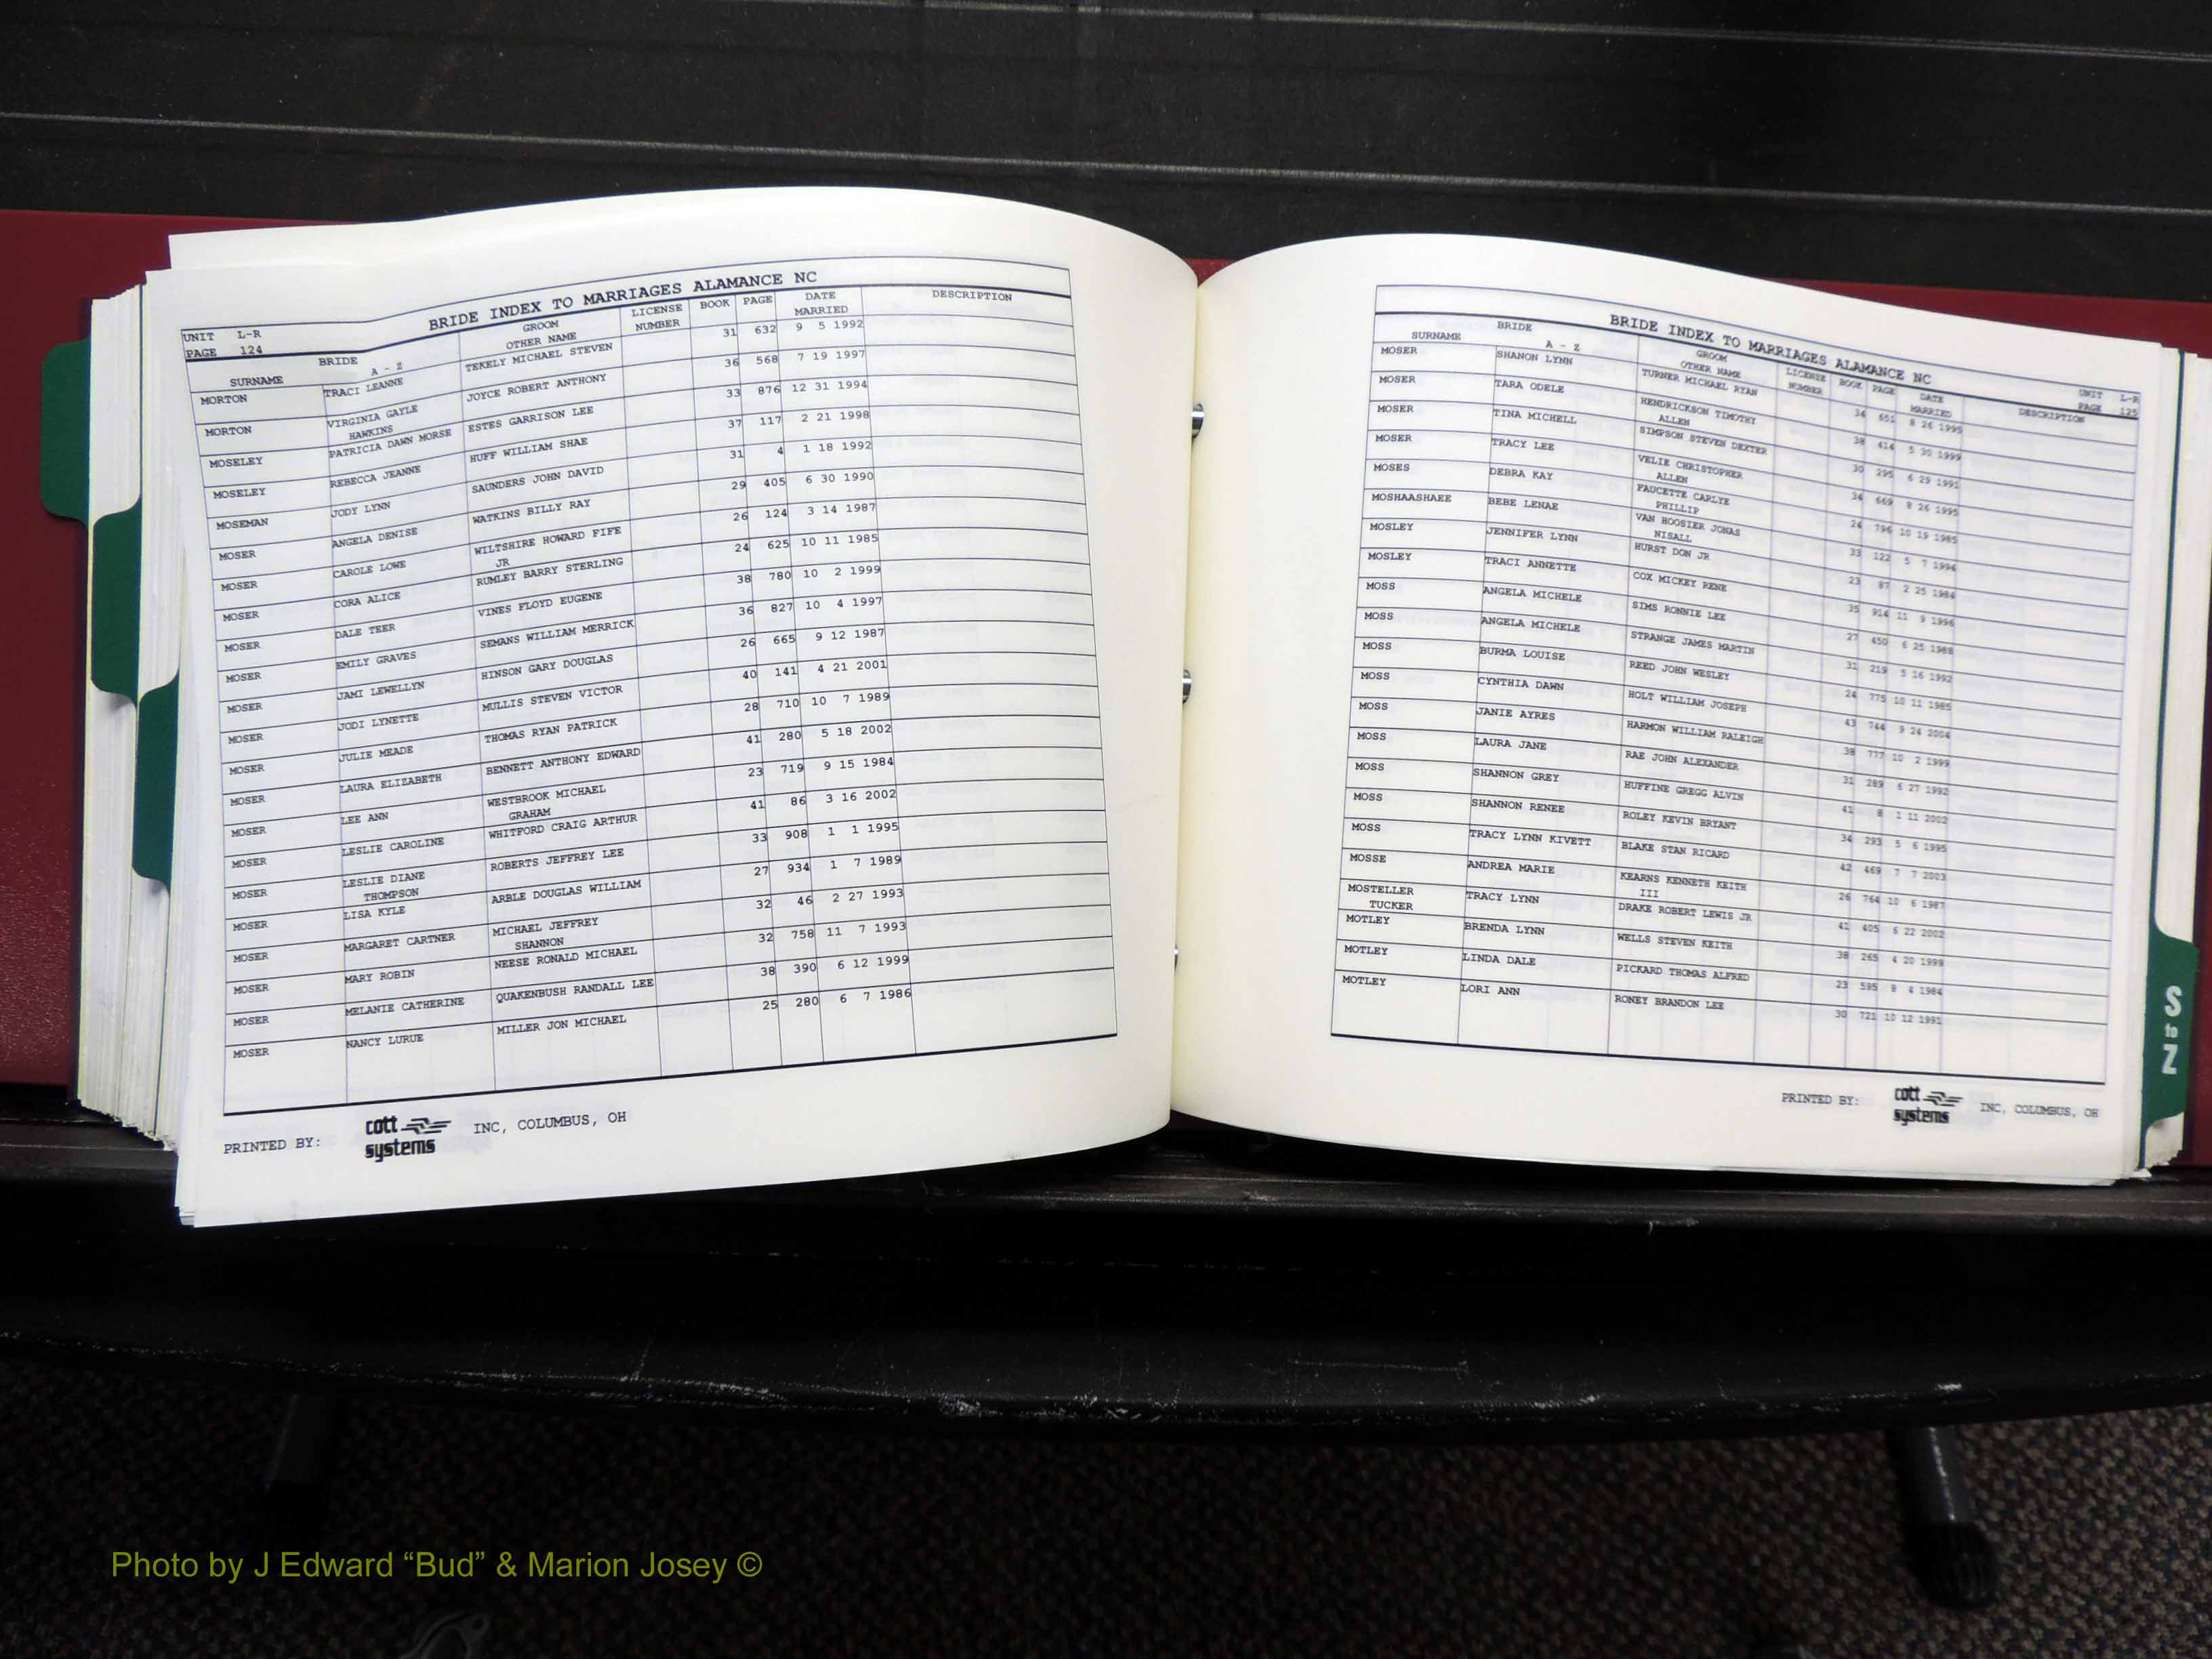 UNIT L-R
PAGE 124
BRIDE INDEX TO MARRIAGES ALAMANCE NC
BRIDE GROOM LICENSE BOOK PAGE DATE DESCRIPTION
SURNAME A - Z OTHER NAME NUMBER MARRIED
MORTON TRACI LEANNE TEKELY MICHAEL STEVEN 31 632 9 5 1992
MORTON VIRGINIA GAYLE JOYCE ROBERT ANTHONY 36 568 7 19 1997
HAWKINS
MOSELEY PATRICIA DAWN MORSE ESTES GARRISON LEE 33 876 12 31 1994
MOSELEY REBECCA JEANNE HUFF WILLIAM SHAE 37 117 2 21 1998
MOSEMAN JODY LYNN SAUNDERS JOHN DAVID 31 4 1 18 1992
MOSER ANGELA DENISE WATKINS BILLY RAY 29 405 6 30 1990
MOSER CAROLE LOWE WILTSHIRE HOWARD FIFE 26 124 3 14 1987
JR
MOSER CORA ALICE RUMLEY BARRY STERLING 24 625 10 11 1985
MOSER DALE TEER VINES FLOYD EUGENE 38 780 10 2 1999
MOSER EMILY GRAVES SEMANS WILLIAM MERRICK 36 827 10 4 1997
MOSER JAMI LEWELLYN HINSON GARY DOUGLAS 26 665 9 12 1987
MOSER JODI LYNETTE MULLIS STEVEN VICTOR 40 141 4 21 2001
MOSER JULIE MEADE THOMAS RYAN PATRICK 28 710 10 7 1989
MOSER LAURA ELIZABETH BENNETT ANTHONY EDWARD 41 280 5 18 2002
MOSER LEE ANN WESTBROOK MICHAEL 23 719 9 15 1984
GRAHAM
MOSER LESLIE CAROLINE WHITFORD CRAIG ARTHUR 41 86 3 16 2002
MOSER LESLIE DIANE ROBERTS JEFFREY LEE 33 908 1 1 1995
THOMPSON
MOSER LISA KYLE ARBLE DOUGLAS WILLIAM 27 934 1 7 1989
MOSER MARGARET CARTNER MICHAEL JEFFREY 32 46 2 27 1993
SHANNON
MOSER MARY ROBIN NEESE RONALD MICHAEL 32 758 11 7 1993
MOSER MELANIE CATHERINE QUAKENBUSH RANDALL LEE 38 390 6 12 1999
MOSER NANCY LURUE MILLER JON MICHAEL 25 280 6 7 1986
PRINTED BY: cott systems INC, COLUMBUS, OH
BRIDE INDEX TO MARRIAGES ALAMANCE NC
UNIT L-R
PAGE 125
BRIDE GROOM LICENSE BOOK PAGE DATE DESCRIPTION
SURNAME A - Z OTHER NAME NUMBER MARRIED
MOSER SHANON LYNN TURNER MICHAEL RYAN 34 651 8 26 1995
MOSER TARA ODELE HENDRICKSON TIMOTHY 38 414 5 30 1999
ALLEN
MOSER TINA MICHELL SIMPSON STEVEN DEXTER 30 295 6 29 1991
MOSER TRACY LEE VELIE CHRISTOPHER 34 669 8 26 1995
ALLEN
MOSES DEBRA KAY FAUCETTE CARLYE 24 796 10 19 1985
PHILLIP
MOSHAASHAEE BEBE LENAE VAN HOOSIER JONAS 33 122 5 7 1994
NISALL
MOSLEY JENNIFER LYNN HURST DON JR 23 87 2 25 1984
MOSLEY TRACI ANNETTE COX MICKEY RENE 35 914 11 9 1996
MOSS ANGELA MICHELE SIMS RONNIE LEE 27 450 6 25 1988
MOSS ANGELA MICHELE STRANGE JAMES MARTIN 31 219 5 16 1992
MOSS BURMA LOUISE REED JOHN WESLEY 24 775 10 11 1985
MOSS CYNTHIA DAWN HOLT WILLIAM JOSEPH 43 744 9 24 2004
MOSS JANIE AYRES HARMON WILLIAM RALEIGH 38 777 10 2 1999
MOSS LAURA JANE RAE JOHN ALEXANDER 31 289 6 27 1992
MOSS SHANNON GREY HUFFINE GREGG ALVIN 41 8 1 11 2002
MOSS SHANNON RENEE ROLEY KEVIN BRYANT 34 293 5 6 1995
MOSS TRACY LYNN KIVETT BLAKE STAN RICARD 42 469 7 7 2003
MOSSE ANDREA MARIE KEARNS KENNETH KEITH 26 764 10 6 1987
III
MOSTELLER TRACY LYNN DRAKE ROBERT LEWIS JR 41 405 6 22 2002
TUCKER
MOTLEY BRENDA LYNN WELLS STEVEN KEITH 38 265 4 20 1999
MOTLEY LINDA DALE PICKARD THOMAS ALFRED 23 595 8 4 1984
MOTLEY LORI ANN RONEY BRANDON LEE 30 721 10 12 1991
PRINTED BY: cott systems INC, COLUMBUS, OH
S
to
Z
Photo by J Edward “Bud” & Marion Josey ©